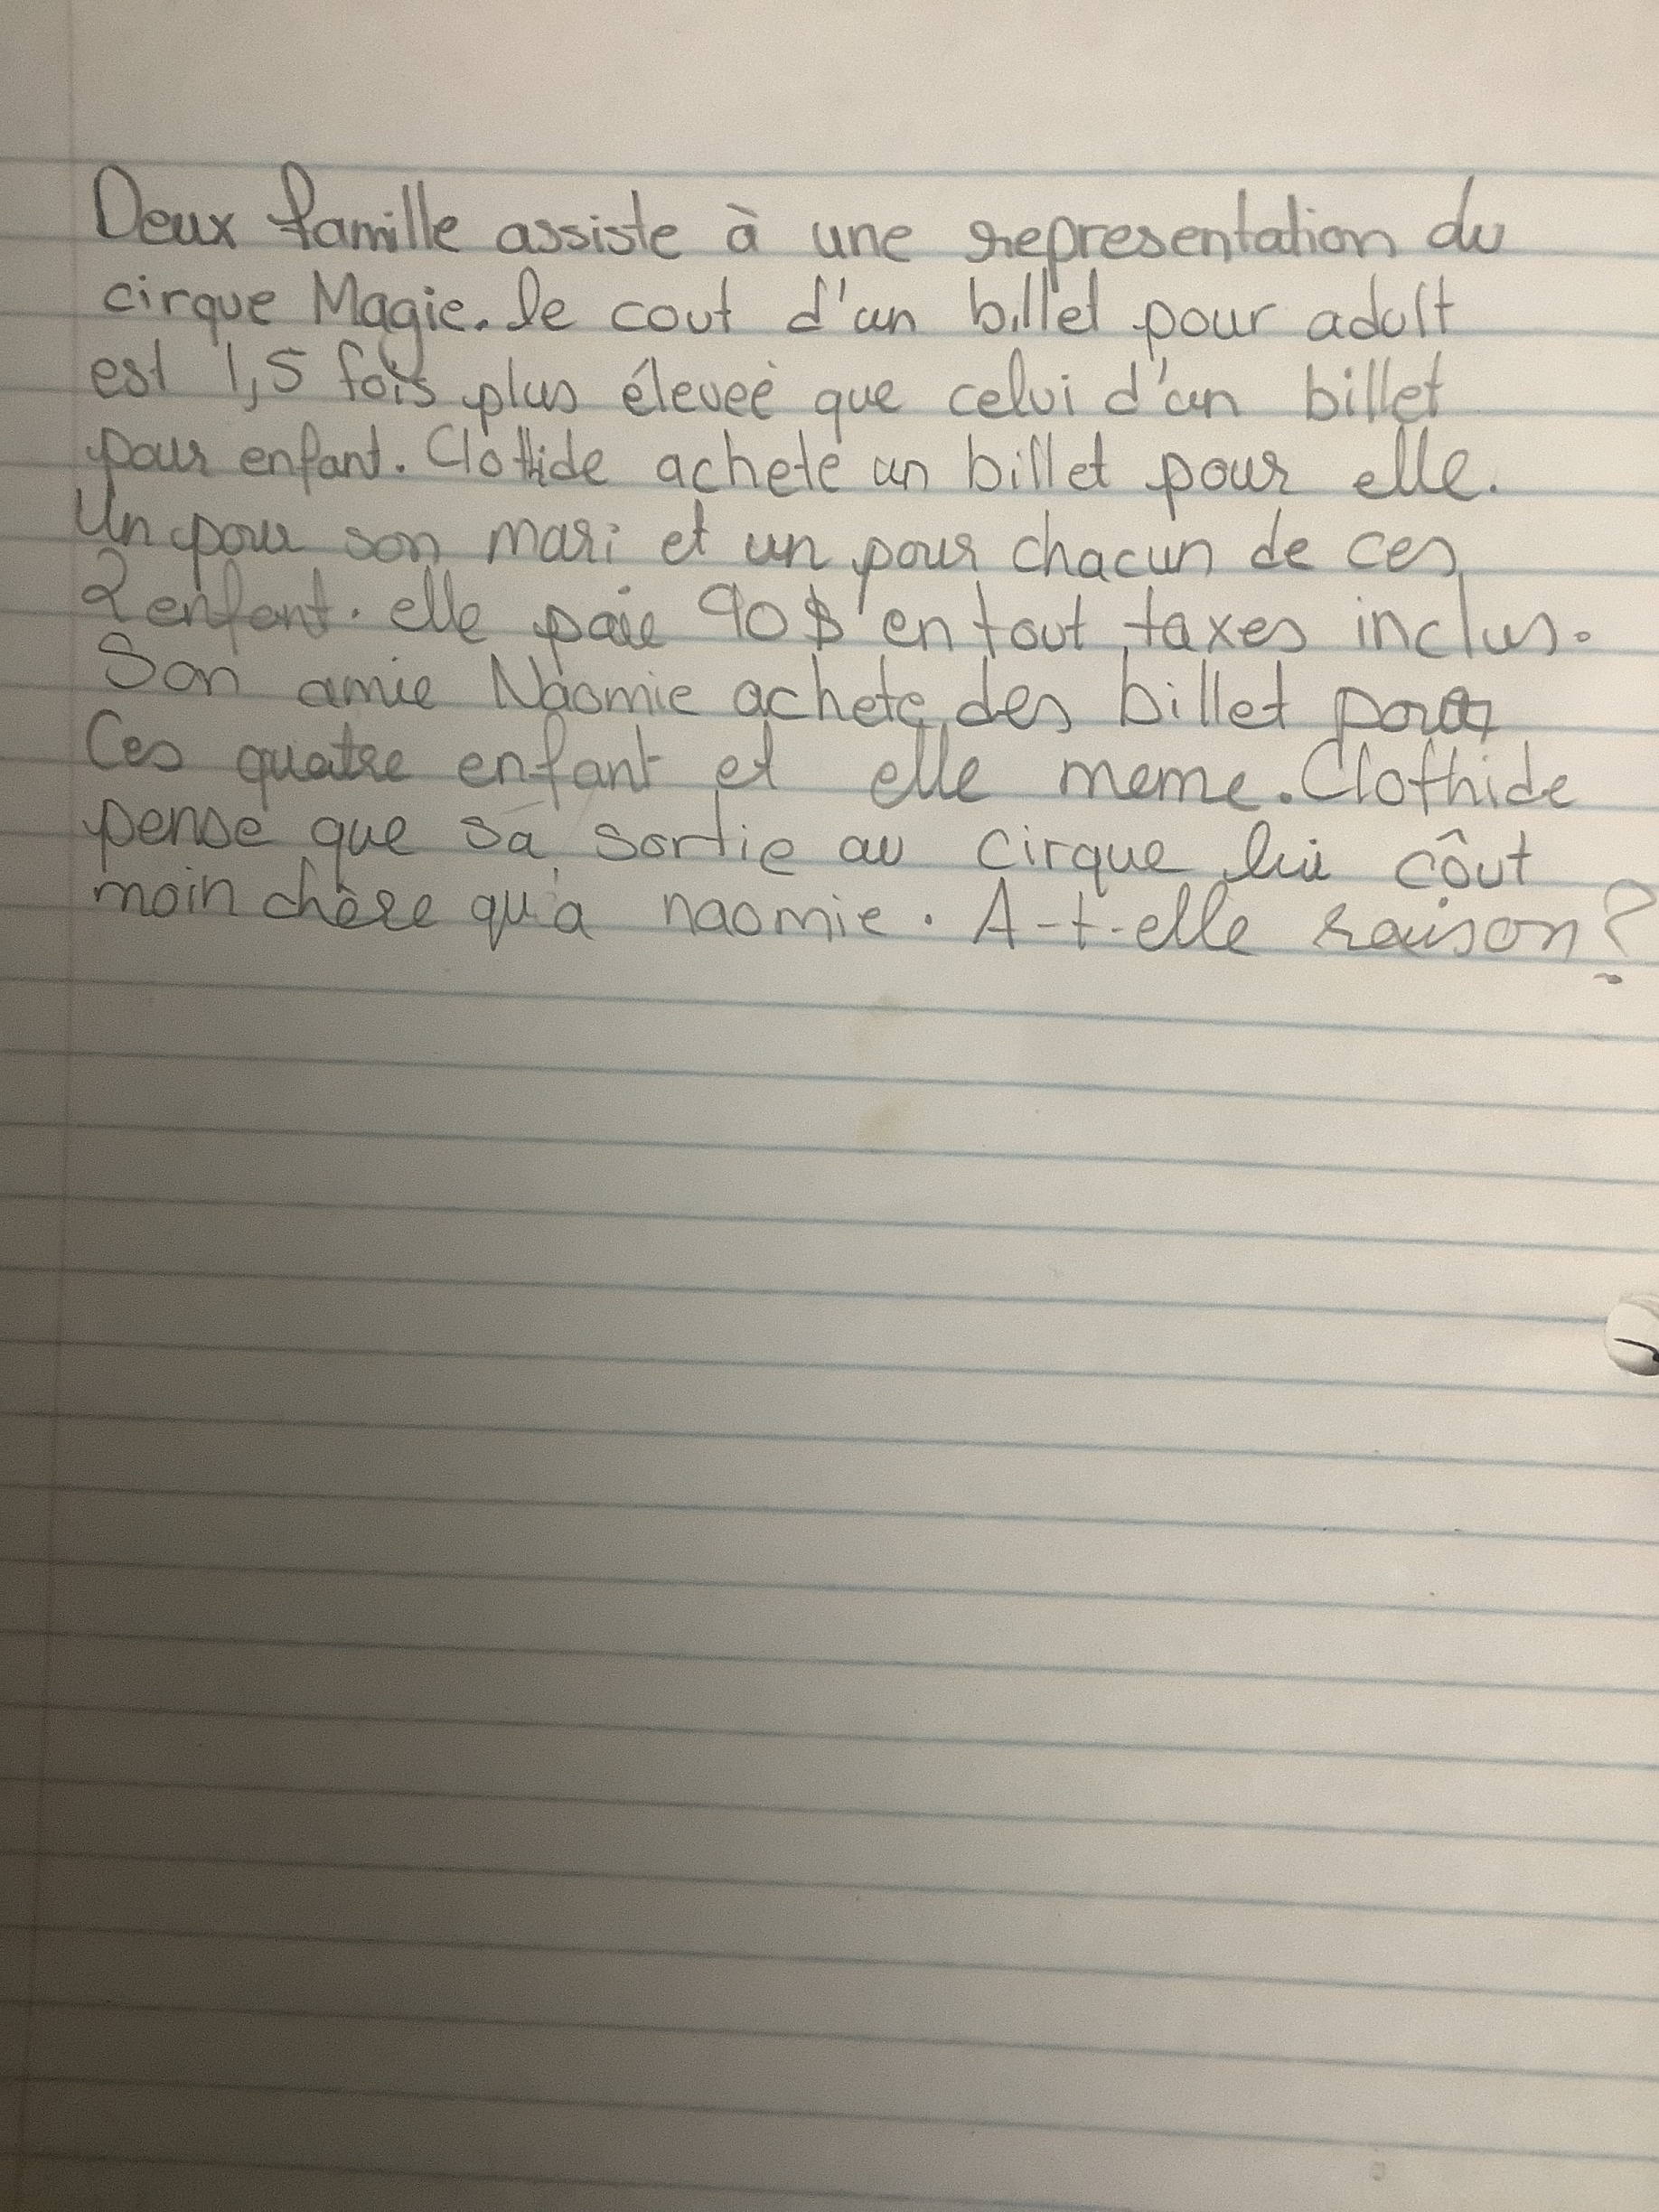 Deux famille assiste à une representation du
cirque Magie. le cout d'un billet pour adult
est 1,5 fois plus éleveé que celui d'un billet
pour enfant. Clothide achete un billet pour elle.
Un pour son mari et un pour chacun de ces
2 enfant. elle paie 90$ en tout taxes inclus.
Son amie Naomie achete des billet pour
Ces quatre enfant et elle meme. Clothide
pense que sa sortie au cirque lui côut
moin chère qu'a naomie. A-t-elle raison?